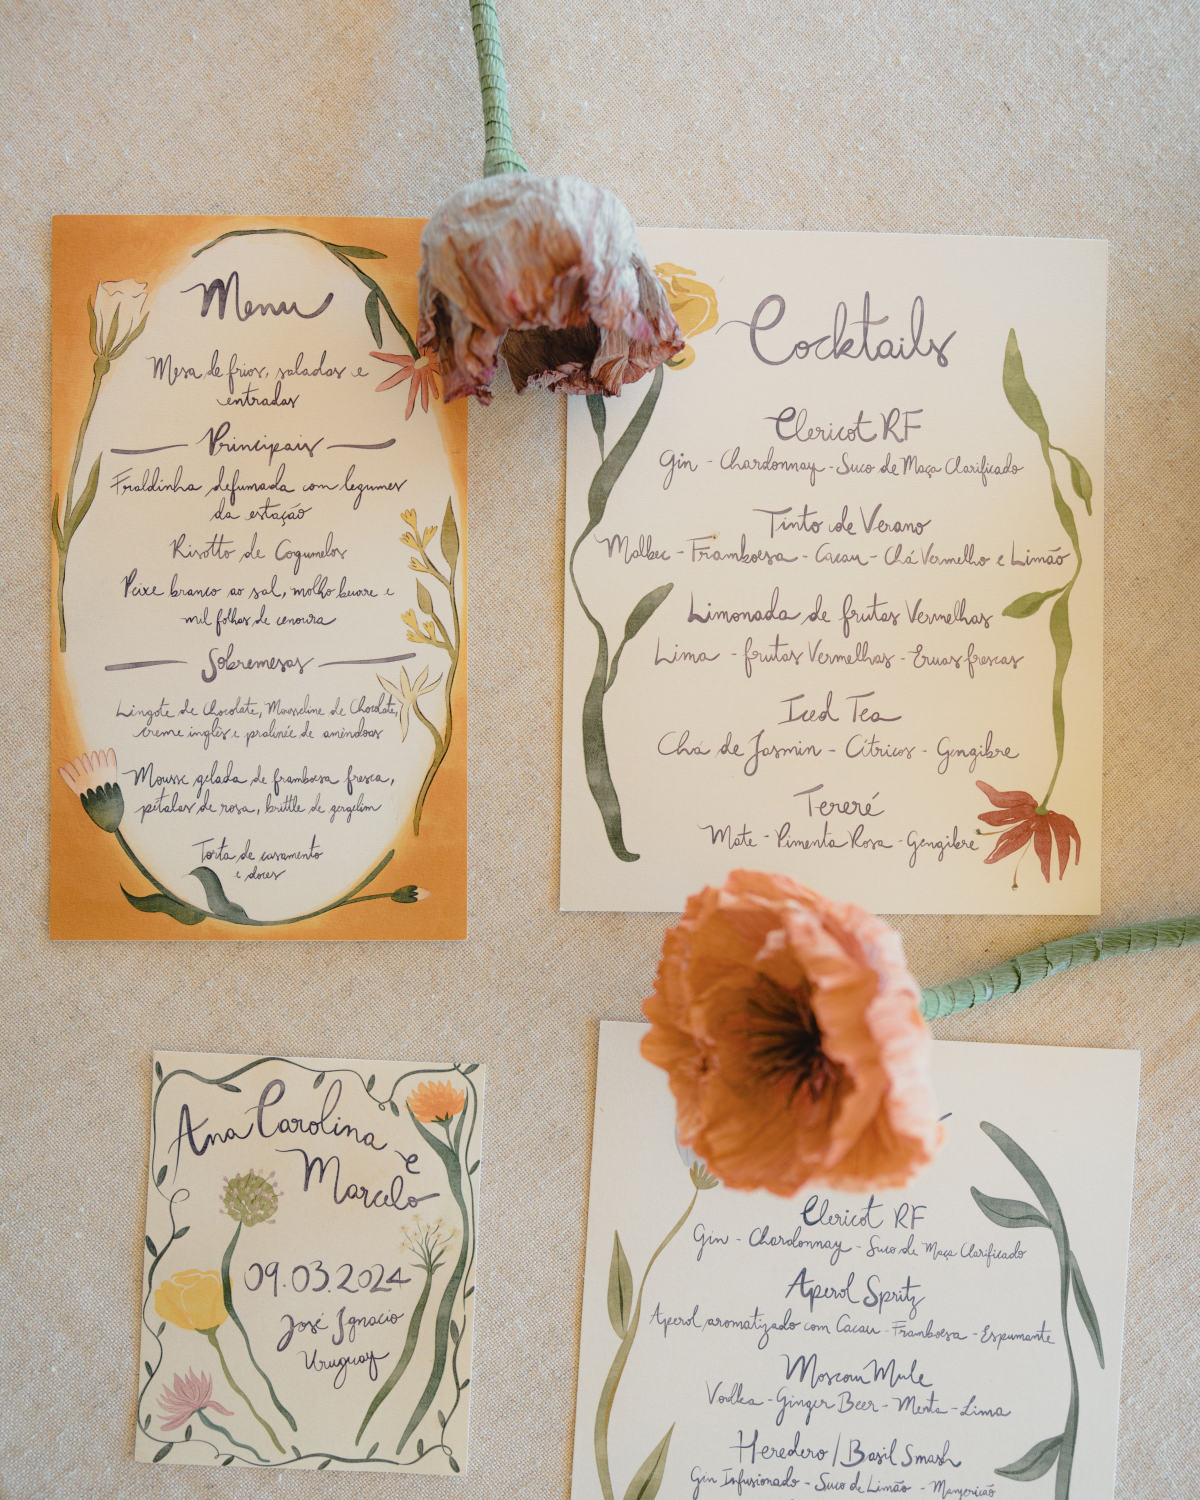 Menu
Mesa de frios, saladas e
entradas
Principais
Fraldinha defumada com legumes
da estação
Risotto de Cogumelos
Peixe branco ao sal, molho beurre e
mil folhas de cenoura
Sobremesas
Lingote de Chocolate, Mousseline de Chocolate,
creme inglês e pralinée de amêndoas
Mousse gelada de framboesa fresca,
pétalas de rosa, brittle de gergelim
Torta de casamento
e doces
Cocktails
Clericot RF
Gin - Chardonnay - Suco de Maça Clarificado
Tinto de Verano
Malbec - Framboesa - Cacau - Chá Vermelho e Limão
Limonada de frutas Vermelhas
Lima - frutas Vermelhas - Ervas frescas
Iced Tea
Chá de Jasmin - Cítricos - Gengibre
Tereré
Mate - Pimenta Rosa - Gengibre
Ana Carolina
e
Marcelo
09.03.2024
José Ignacio
Uruguay
Clericot RF
Gin - Chardonnay - Suco de Maça Clarificado
Aperol Spritz
Aperol aromatizado com Cacau - Framboesa - Espumante
Moscow Mule
Vodka - Ginger Beer - Menta - Lima
Heredero / Basil Smash
Gin Infusionado - Suco de Limão - Manjericão